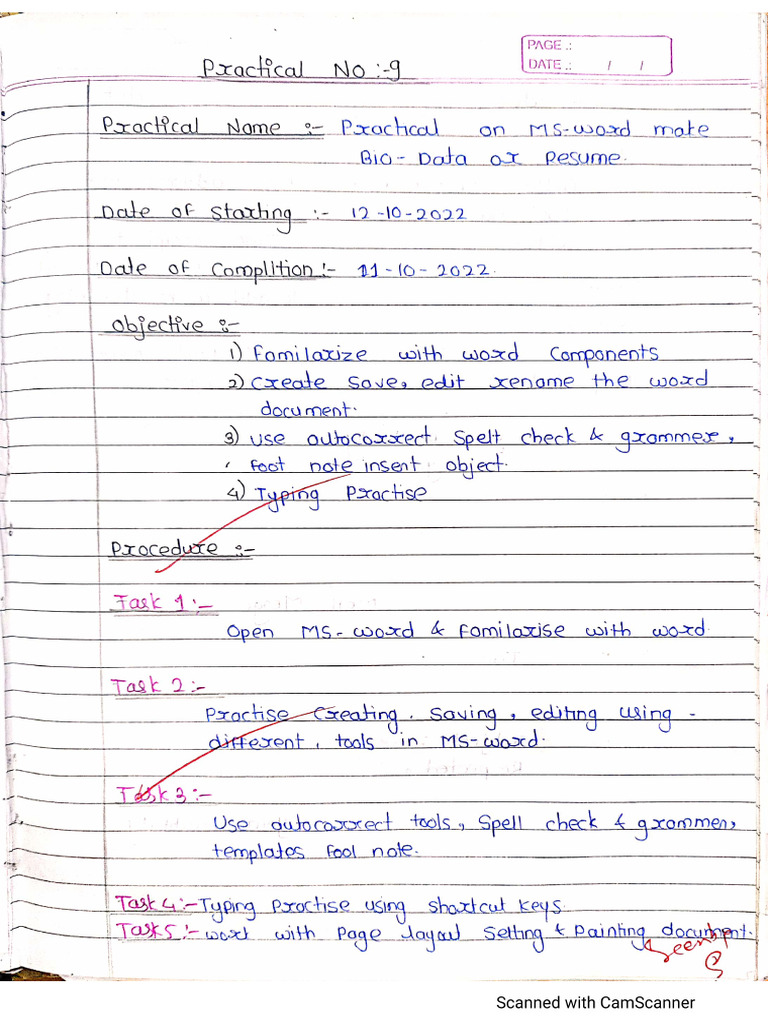 PAGE.:
DATE.: / /
Practical No:-9
Practical Name :- Practical on MS-word make
Bio-Data or Resume.
Date of Starting :- 12-10-2022
Date of Complition:- 11-10-2022.
Objective :-
1) Familarize with word Components
2) Create Save, edit rename the word
document.
3) Use autocorrect Spelt check & grammer,
foot note insent object.
4) Typing Practise
Procedure :-
Task 1:-
Open MS-word & Familarise with word.
Task 2:-
Practise Creating, Saving, editing using -
different, tools in MS-word.
Task 3:-
Use autocorrect tools, Spell check & grammer,
templates fool note.
Task 4:- Typing Practise using shortcut keys.
Task 5:- word with Page layout Setting & Painting document.
Seen
Scanned with CamScanner